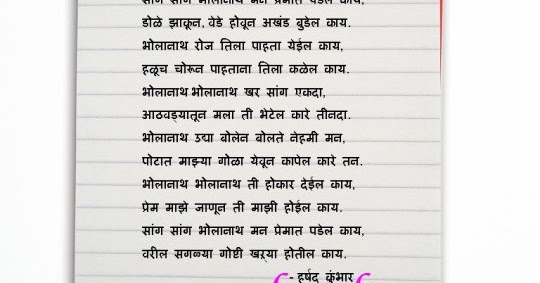 सांग सांग भोलानाथ मन प्रेमात पडेल काय,
डोळे झाकून, वेडे होवून अखंड बुडेल काय.
भोलानाथ रोज तिला पाहता येईल काय,
हळूच चोरून पाहताना तिला कळेल काय.
भोलानाथ भोलानाथ खर सांग एकदा,
आठवड्यातून मला ती भेटेल कारे तीनदा.
भोलानाथ उद्या बोलेन बोलते नेहमी मन,
पोटात माझ्या गोळा येवून कापेल कारे तन.
भोलानाथ भोलानाथ ती होकार देईल काय,
प्रेम माझे जाणून ती माझी होईल काय.
सांग सांग भोलानाथ मन प्रेमात पडेल काय,
वरील सगळ्या गोष्टी खऱ्या होतील काय.
- हर्षद कुंभार